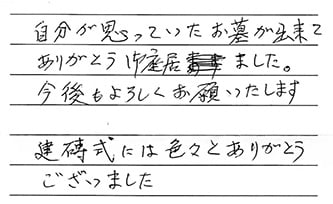 自分が思っていたお墓が出来て
ありがとう御座居ました。
今後もよろしくお願いいたします
建碑式には色々とありがとう
ございました